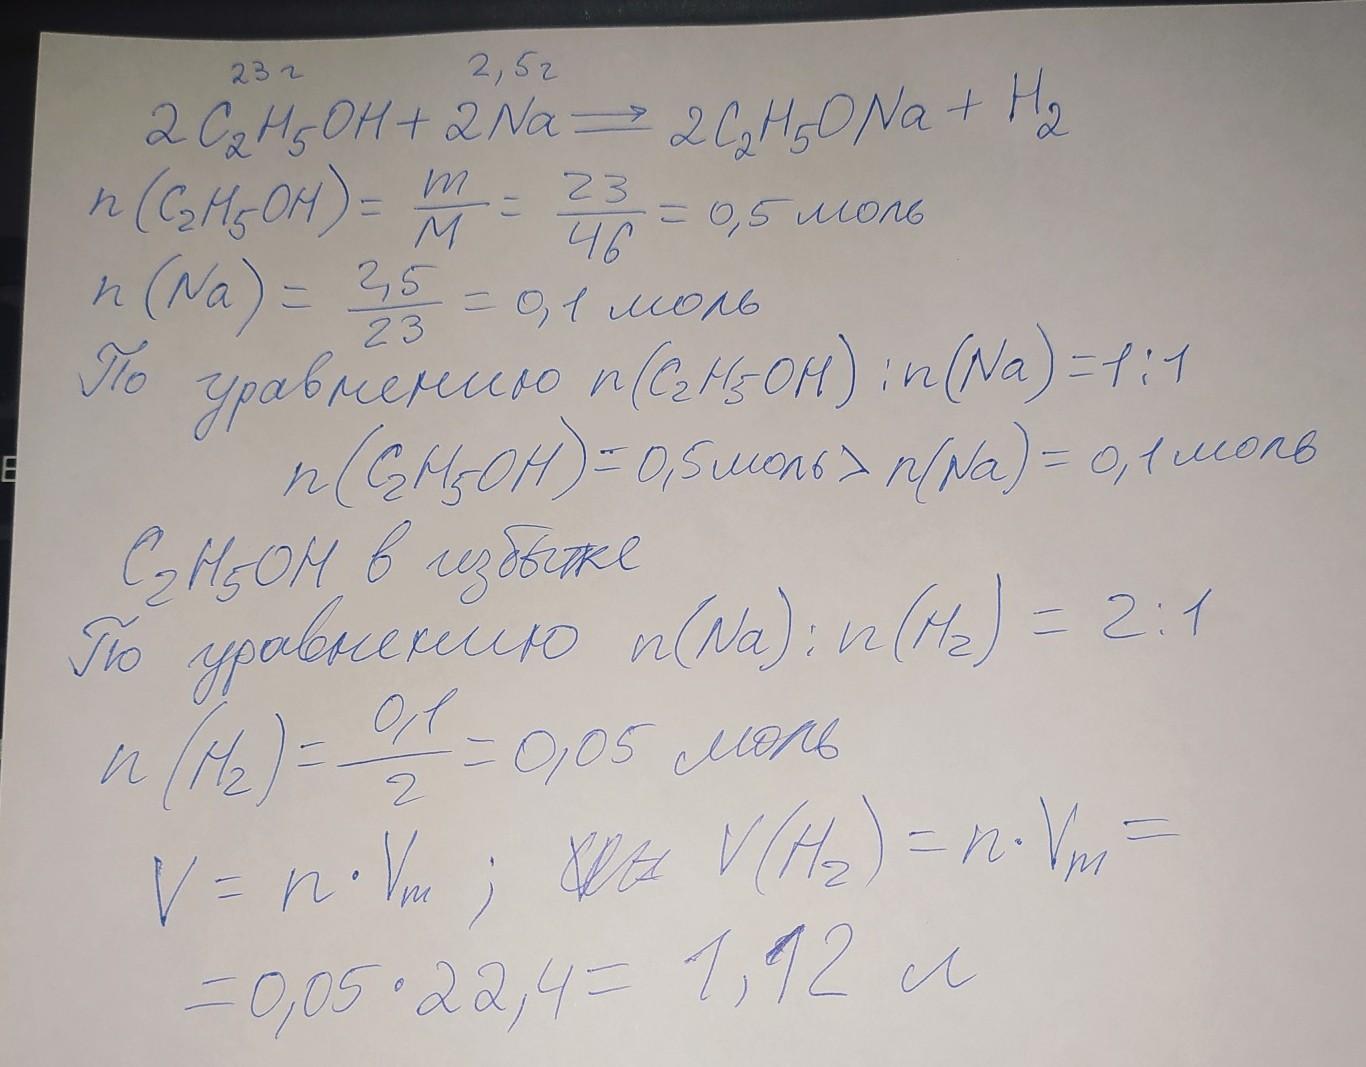 23 г 2,5г
2C₂H₅OH + 2Na ⟹ 2C₂H₅ONa + H₂
n(C₂H₅OH) = m/M = 23/46 = 0,5 моль
n(Na) = 2,5/23 = 0,1 моль
По уравнению n(C₂H₅OH) : n(Na) = 1:1
n(C₂H₅OH) = 0,5 моль > n(Na) = 0,1 моль
C₂H₅OH в избытке
По уравнению n(Na) : n(H₂) = 2:1
n(H₂) = 0,1/2 = 0,05 моль
V = n · Vm ; V(H₂) = n · Vm =
= 0,05 · 22,4 = 1,12 л